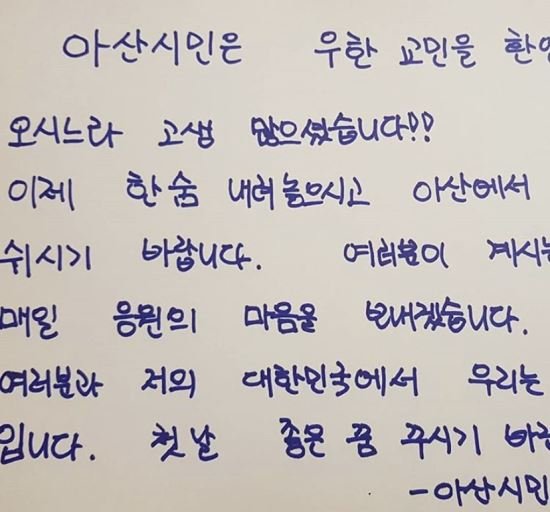 아산시민은 우한 교민을 환영
오시느라 고생 많으셨습니다!!
이제 한숨 내려놓으시고 아산에서
쉬시기 바랍니다. 여러분이 계시는
매일 응원의 마음을 보내겠습니다.
여러분과 저의 대한민국에서 우리는
입니다. 첫날 좋은 꿈 꾸시기 바랍
-아산시민